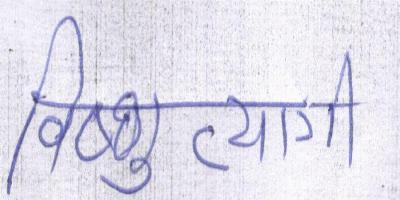 विष्णु त्यागी